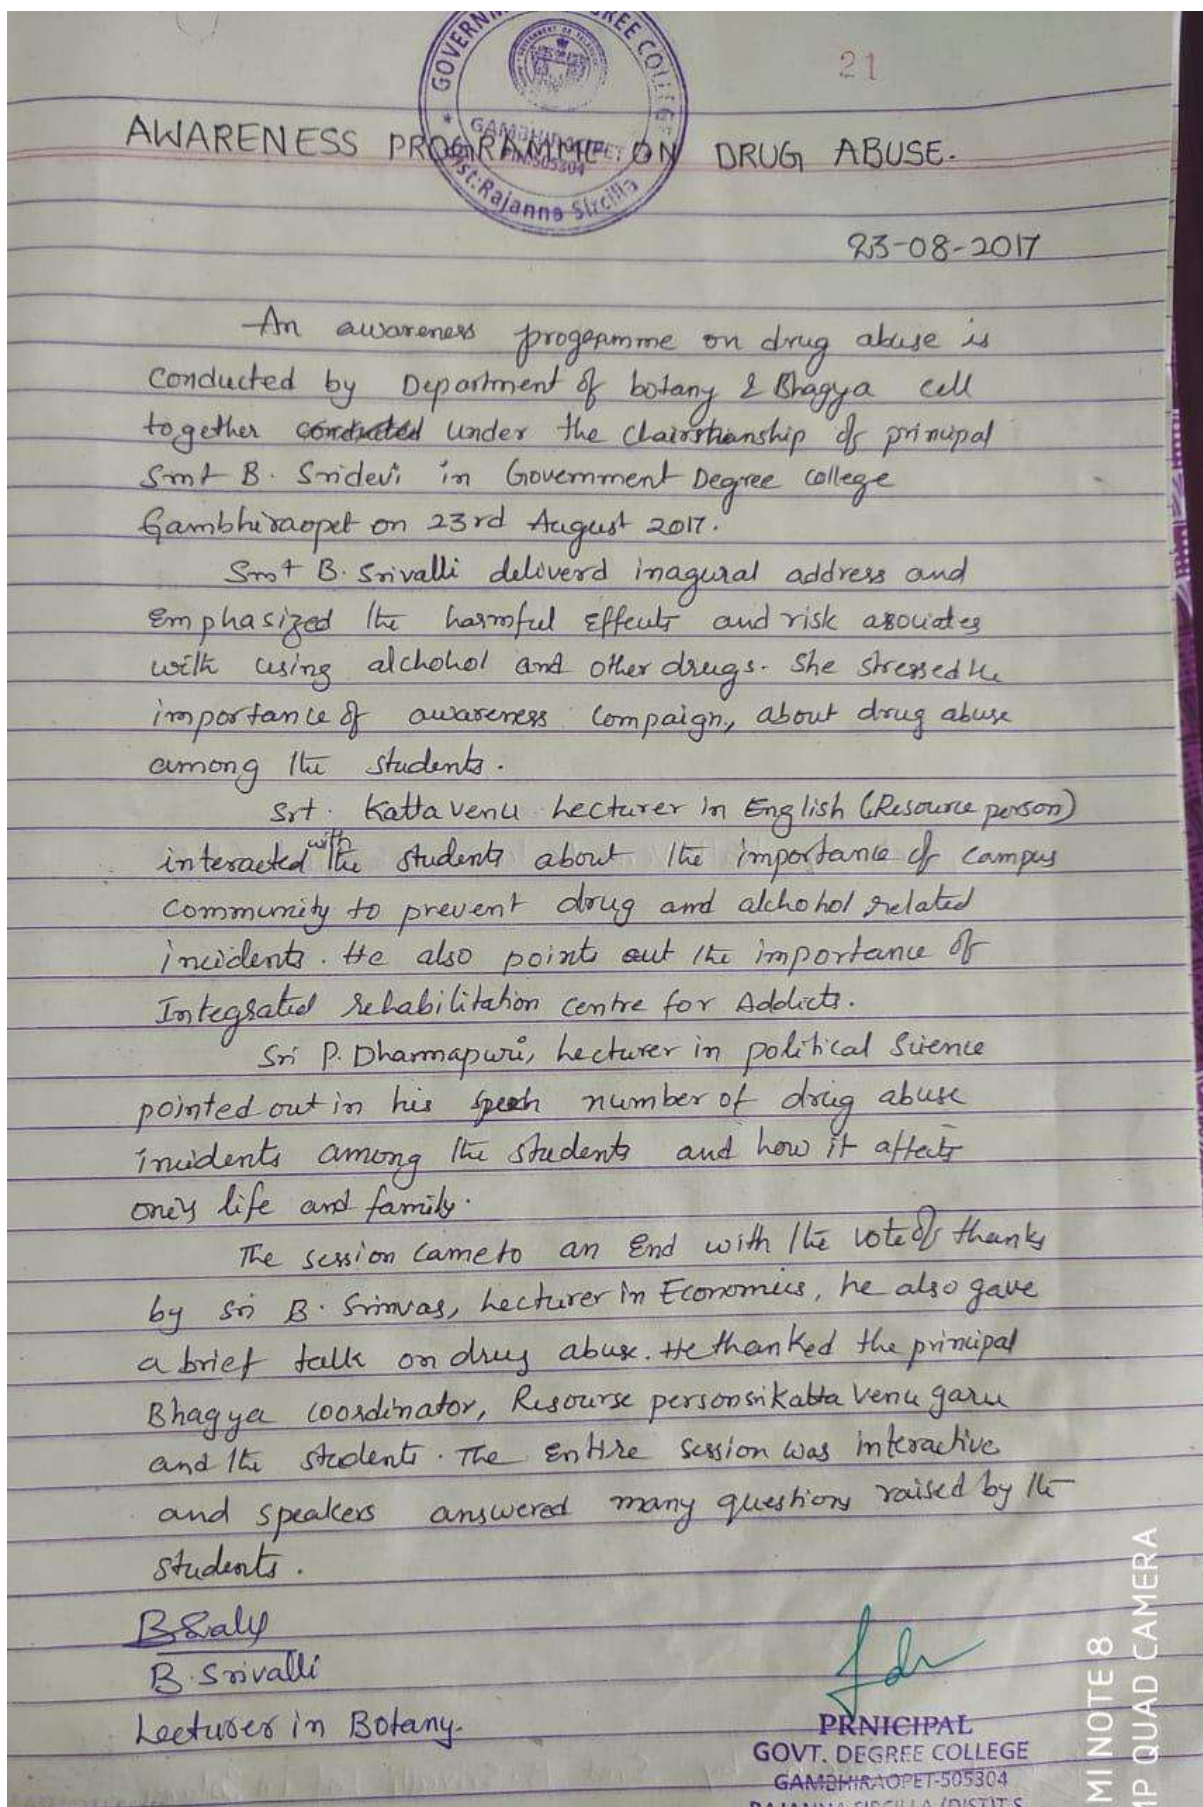 GOVERNMENT DEGREE COLLEGE
GAMBHIRAOPET
PIN:505304
Dist:Rajanna Sircilla
21
AWARENESS PROGRAMME ON DRUG ABUSE.
23-08-2017
An awareness progrmme on drug abuse is
Conducted by Department of botany & Bhagya cell
together conducted under the Chairmanship of prinipal
Smt B. Sridevi in Government Degree college
Gambhiraopet on 23rd August 2017.
Smt B. Srivalli deliverd inagural address and
Emphasized the harmful Effects and risk asouiates
with using alchohol and other drugs. She stressed the
importance of awareness Compaign, about drug abuse
among the students.
Srt. Katta venu Lecturer in English (Resource person)
interacted with the students about the importance of campus
Community to prevent drug and alchohol related
incidents. He also points out the importance of
Integrated rehabilitation centre for Addicts.
Sri P. Dharmapuri, Lecturer in political Science
pointed out in his speech number of drug abuse
incidents among the students and how it affects
one's life and family.
The session came to an End with the vote of thanks
by sri B. Srinvas, Lecturer in Economics, he also gave
a brief talk on drug abuse. He thanked the principal
Bhagya coordinator, Resourse person sri Katta Venu garu
and the students. The Entire session was interactive
and speakers answered many questions raised by the
students.
B. Srivalli
Lecturer in Botany.
PRNICIPAL
GOVT. DEGREE COLLEGE
GAMBHIRAOPET-505304
RAJANNA SIRCILLA (DIST) T.S
MI NOTE 8
MP QUAD CAMERA